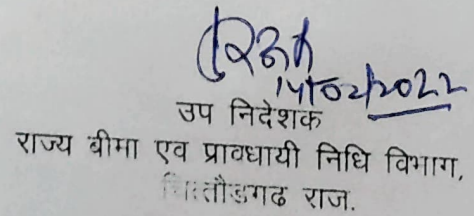 14/02/2022
उप निदेशक
राज्य बीमा एव प्रावधायी निधि विभाग,
चित्तौडगढ राज.